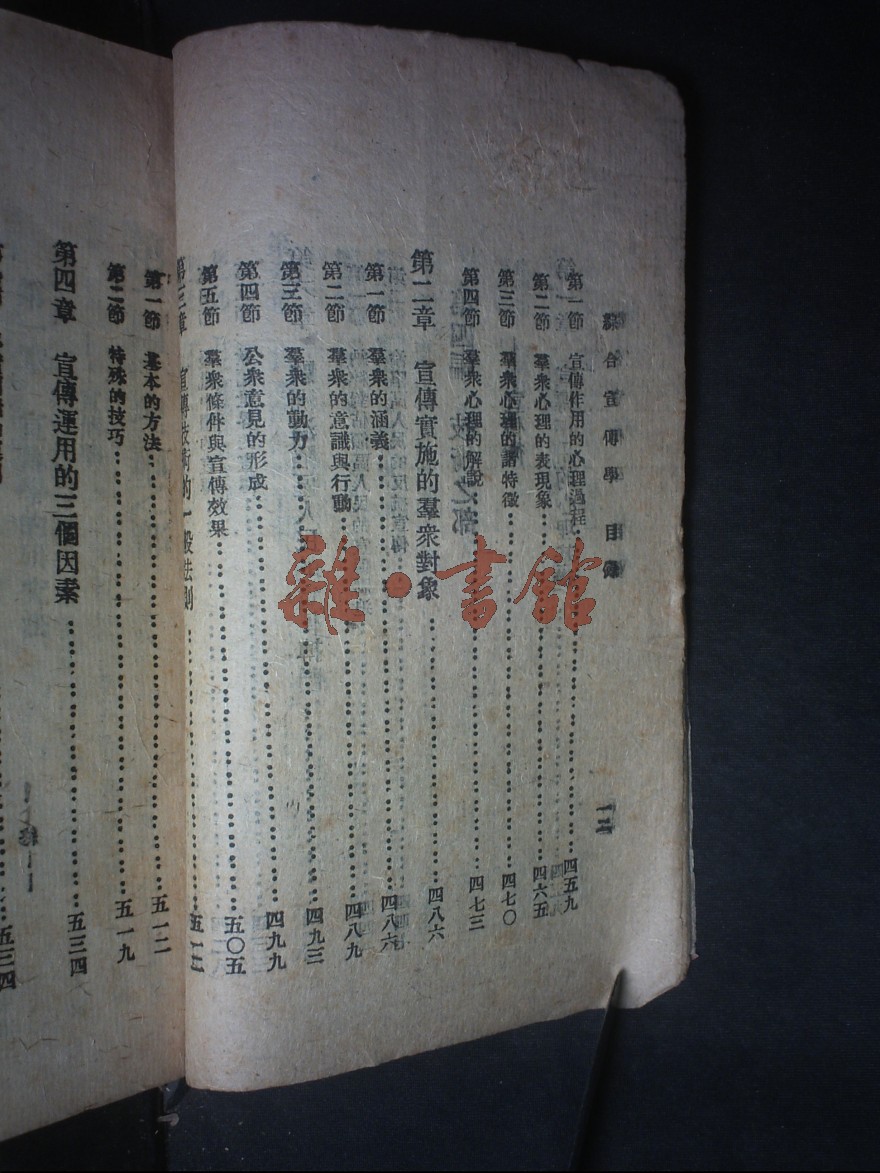 綜合宣傳學 目錄 一二
第一節 宣傳作用的心理過程……四五九
第二節 羣衆心理的表現象……四六五
第三節 羣衆心理的諸特徵……四七〇
第四節 羣衆心理的解說……四七三
第二章 宣傳實施的羣衆對象……四八六
第一節 羣衆的涵義……四八六
第二節 羣衆的意識與行動……四八九
第三節 羣衆的動力……四九三
第四節 公衆意見的形成……四九九
第五節 羣衆條件與宣傳效果……五〇五
第三章 宣傳技術的一般法則……五一二
第一節 基本的方法……五一二
第二節 特殊的技巧……五一九
第四章 宣傳運用的三個因素……五三四
五三四
雜·書館